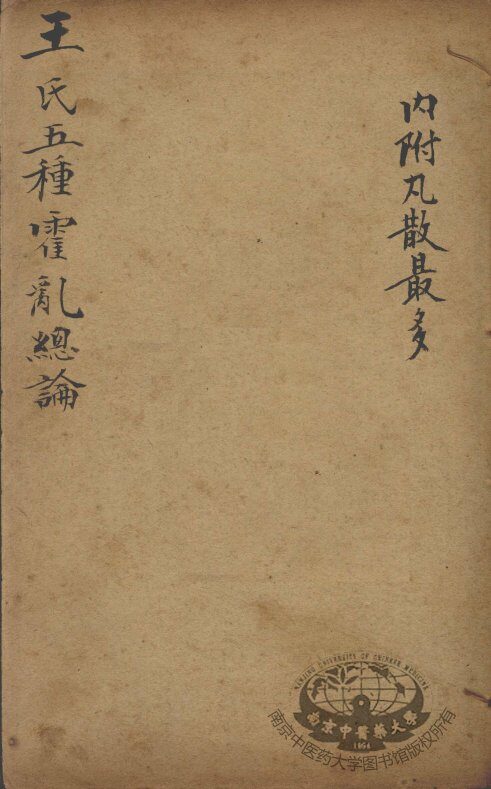 內附丸散最多
王氏五種霍亂總論
NANJING UNIVERSITY OF CHINESE MEDICINE
南京中醫藥大學
1954
南京中医药大学图书馆版权所有